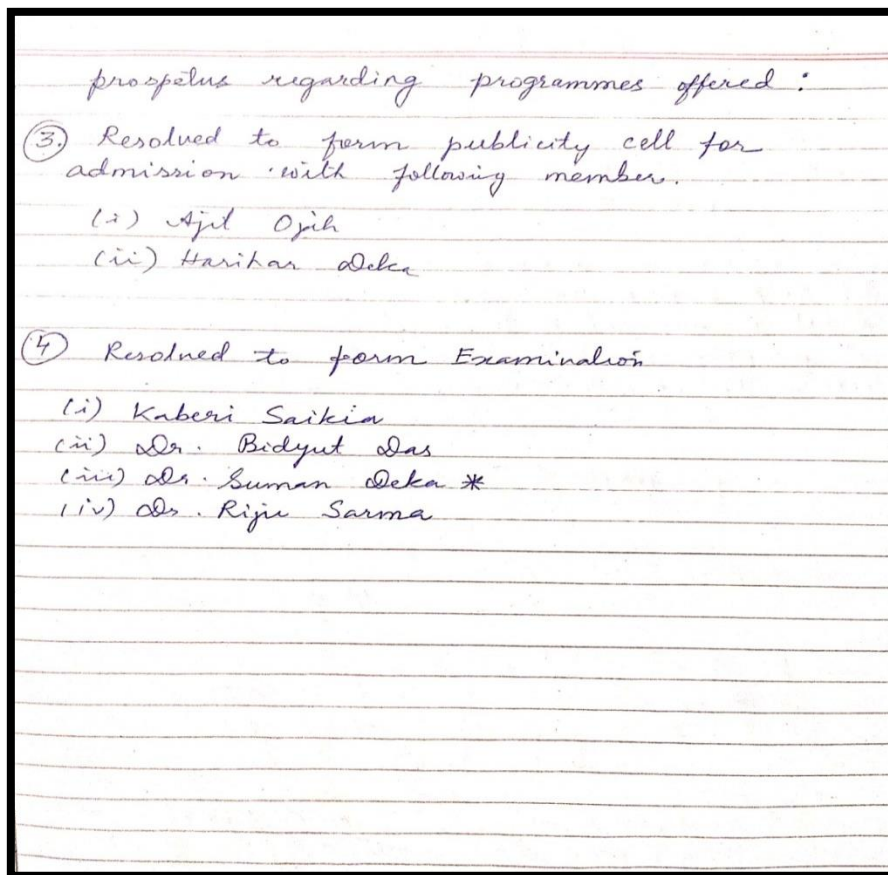 prospetus regarding programmes offered :
3. Resolved to form publicity cell for
admission with following member.
(i) Ajit Ojah
(ii) Harihar Deka
4 Resolved to form Examination
(i) Kaberi Saikia
(ii) Dr. Bidyut Das
(iii) Dr. Suman Deka *
(iv) Dr. Riju Sarma